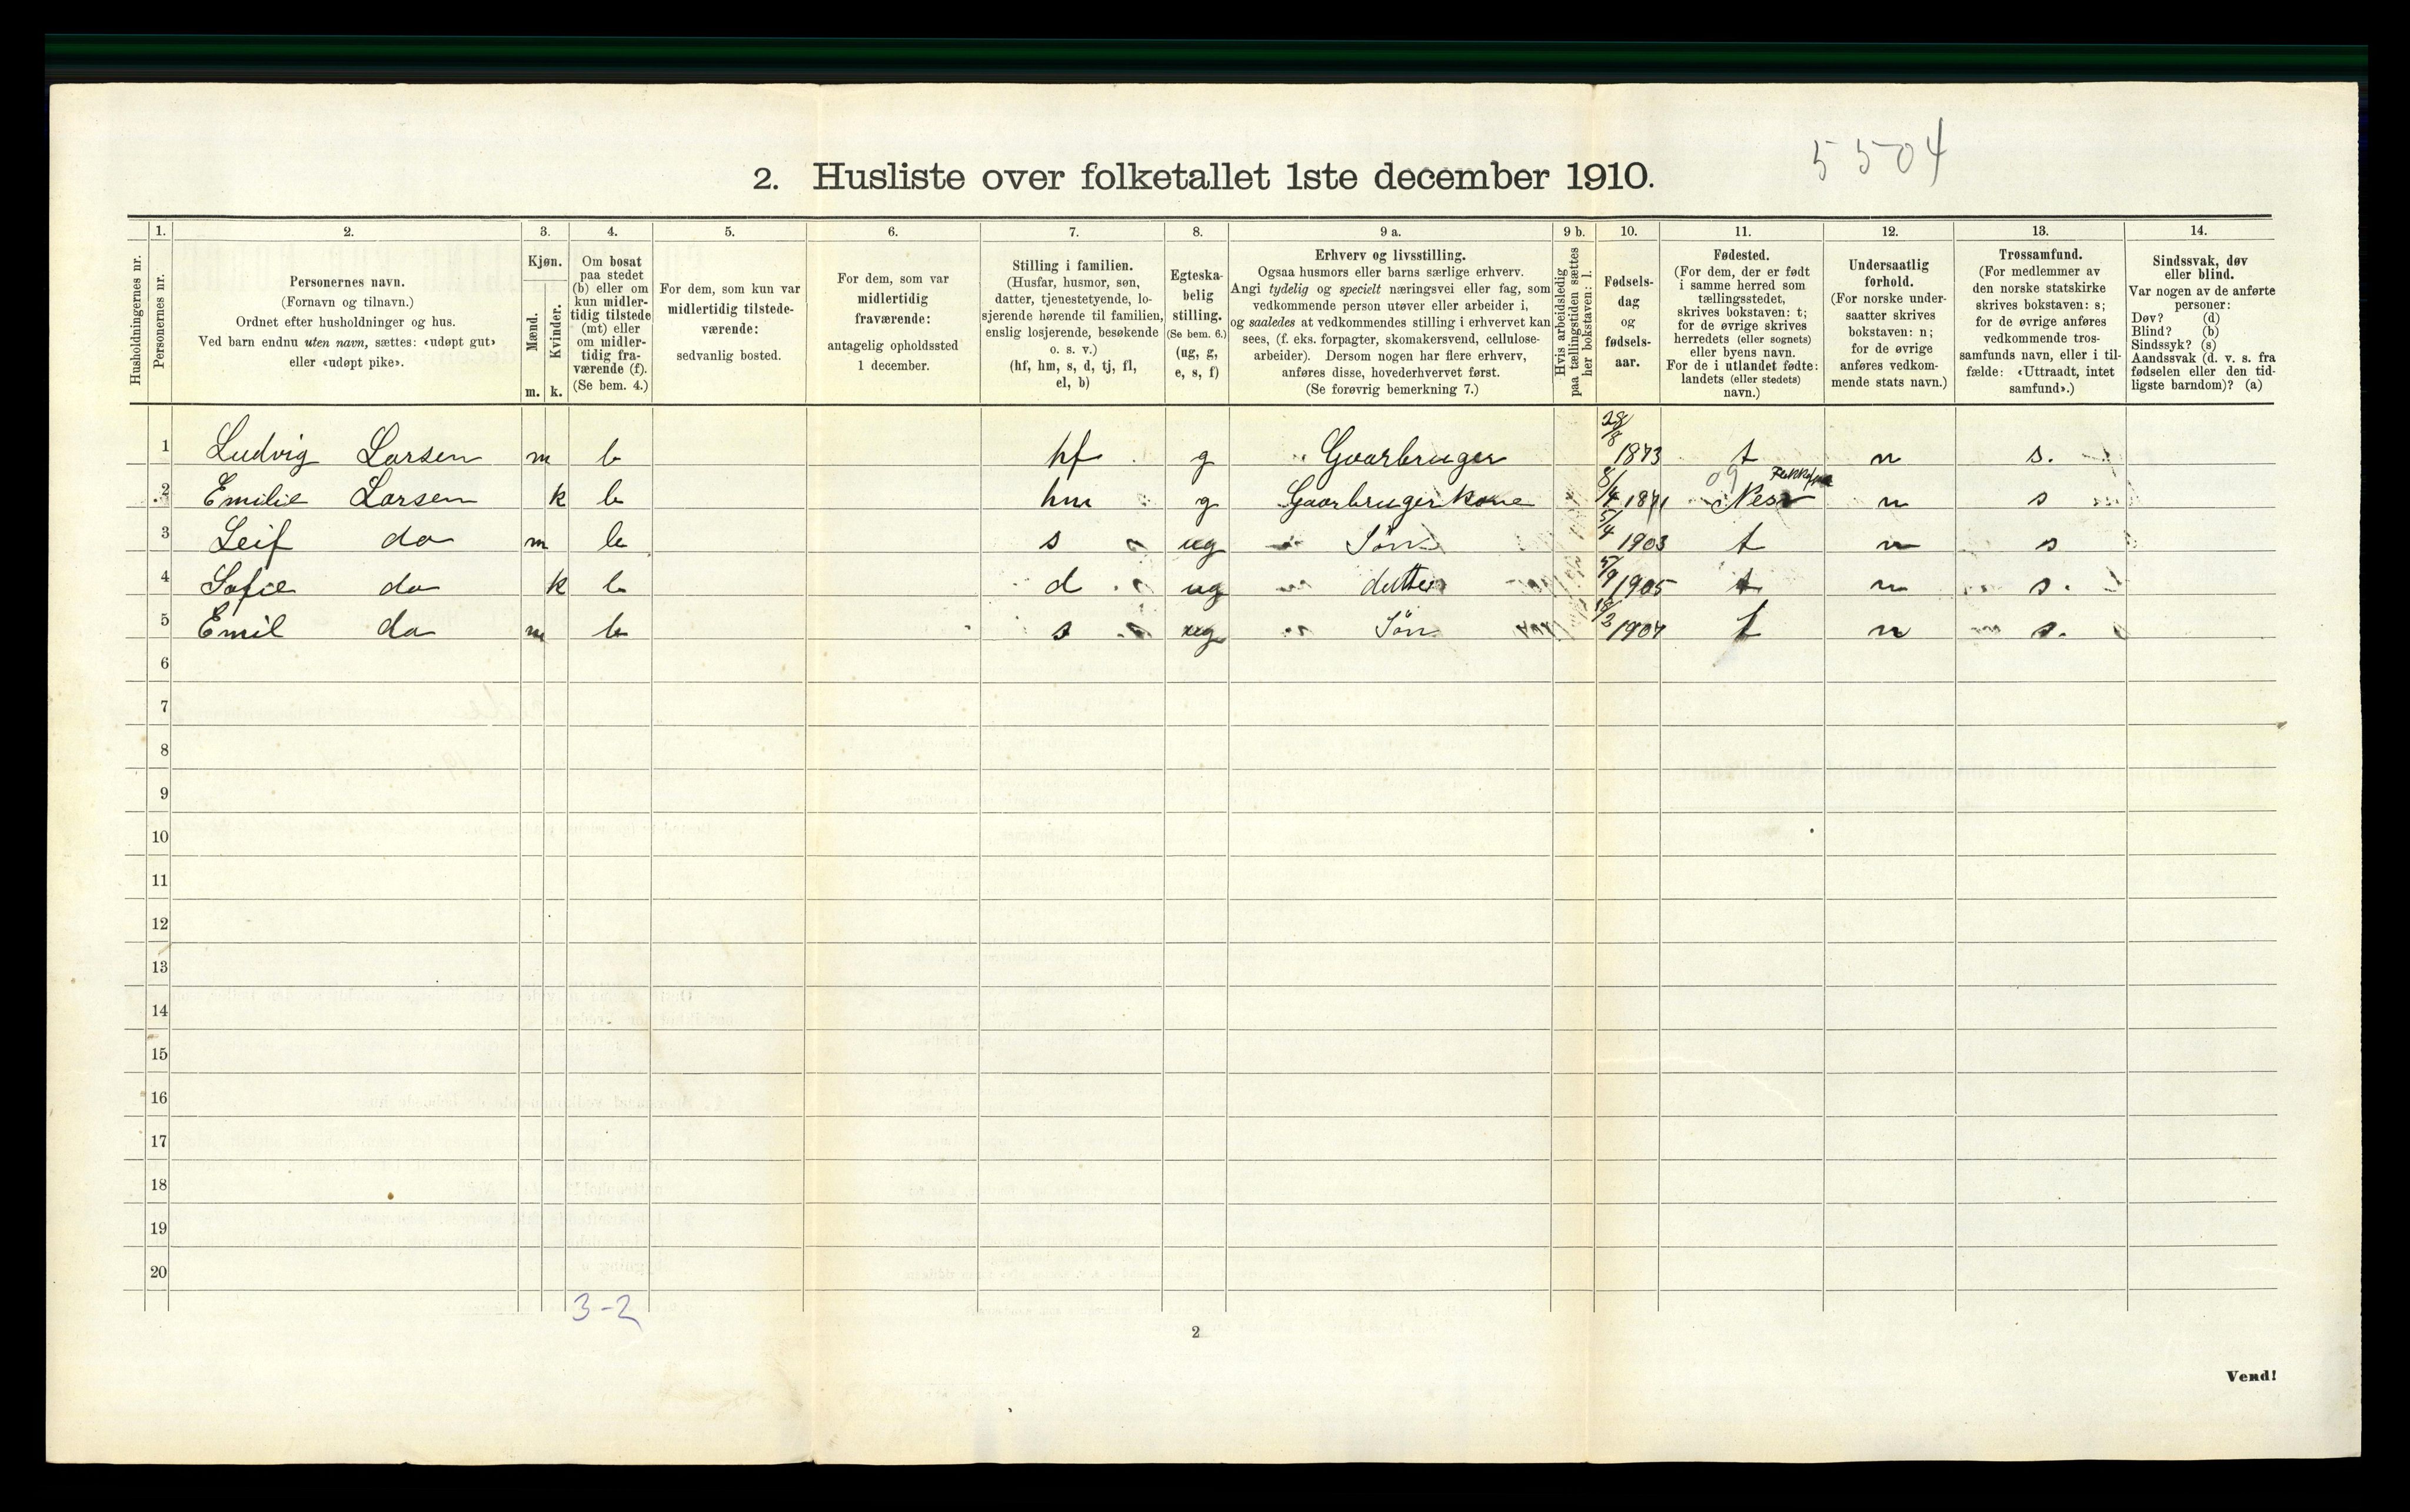 5504
2. Husliste over folketallet 1ste december 1910.
1. 2. 3. 4. 5. 6. 7. 8. 9 a. 9 b. 10. 11. 12. 13. 14.
Husholdningernes nr.
Personernes nr.
Personernes navn.
(Fornavn og tilnavn.)
Ordnet efter husholdninger og hus.
Ved barn endnu uten navn, sættes: «udøpt gut»
eller «udøpt pike».
Kjøn.
Mænd.
Kvinder.
m. k.
Om bosat
paa stedet
(b) eller om
kun midler-
tidig tilstede
(mt) eller
om midler-
tidig fra-
værende (f).
(Se bem. 4.)
For dem, som kun var
midlertidig tilstede-
værende:
sedvanlig bosted.
For dem, som var
midlertidig
fraværende:
antagelig opholdssted
1 december.
Stilling i familien.
(Husfar, husmor, søn,
datter, tjenestetyende, lo-
sjerende hørende til familien,
enslig losjerende, besøkende
o. s. v.)
(hf, hm, s, d, tj, fl,
el, b)
Egteska-
belig
stilling.
(Se bem. 6.)
(ug, g,
e, s, f)
Erhverv og livsstilling.
Ogsaa husmors eller barns særlige erhverv.
Angi tydelig og specielt næringsvei eller fag, som
vedkommende person utøver eller arbeider i,
og saaledes at vedkommendes stilling i erhvervet kan
sees, (f. eks. forpagter, skomakersvend, cellulose-
arbeider). Dersom nogen har flere erhverv,
anføres disse, hovederhvervet først.
(Se forøvrig bemerkning 7.)
Hvis arbeidsledig
paa tællingstiden sættes
her bokstaven: l.
Fødsels-
dag
og
fødsels-
aar.
Fødested.
(For dem, der er født
i samme herred som
tællingsstedet,
skrives bokstaven: t;
for de øvrige skrives
herredets (eller sognets)
eller byens navn.
For de i utlandet fødte:
landets (eller stedets)
navn.)
Undersaatlig
forhold.
(For norske under-
saatter skrives
bokstaven: n;
for de øvrige
anføres vedkom-
mende stats navn.)
Trossamfund.
(For medlemmer av
den norske statskirke
skrives bokstaven: s;
for de øvrige anføres
vedkommende tros-
samfunds navn, eller i til-
fælde: «Uttraadt, intet
samfund».)
Sindssvak, døv
eller blind.
Var nogen av de anførte
personer:
Døv? (d)
Blind? (b)
Sindssyk? (s)
Aandssvak (d. v. s. fra
fødselen eller den tid-
ligste barndom)? (a)
1 Ludvig Larsen m b hf g Gaarbruger 28/8 1873 t n s.
2 Emilie Larsen k b hm g Gaarbruger kone 8/4 1871 09 Nes n s
3 Leif do m b s ug Søn 5/4 1903 t n s
4 Sofie do k b d ug datter 5/9 1905 t n s.
5 Emil do m b s ug Søn 18/2 1907 t n s.
6
7
8
9
10
11
12
13
14
15
16
17
18
19
20
3-2
2
Vend!